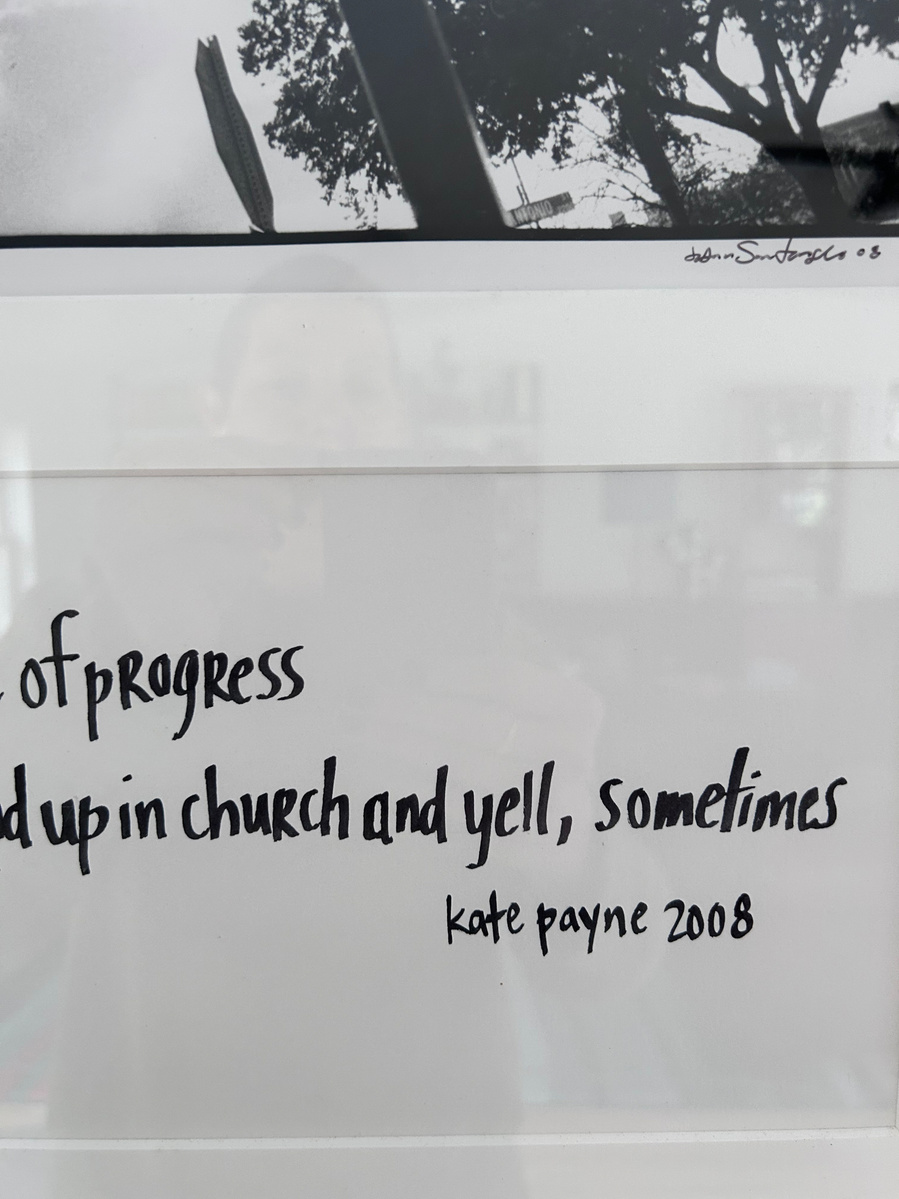 JoAnn Santangelo 08
of progress
up in church and yell, sometimes
kate payne 2008